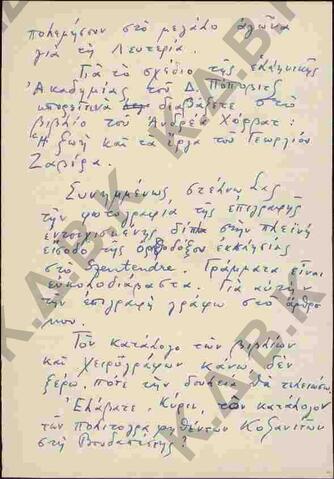 πολεμήσουν στὸ μεγάλο ἀγῶνα
γιὰ τὴ Λευτεριά.
Γιὰ τὸ σχέδιο τῆς ἑλληνικῆς
Ἀκαδημίας τοῦ Δ. Πόποβιτς
μπορεῖτε νὰ διαβάσετε στὸ
βιβλίο τοῦ Ἀνδρέα Χόρβατ:
Ἡ ζωὴ καὶ τὰ ἔργα τοῦ Γεωργίου
Ζαβίρα.
Συνημμένως στέλνω Σας
τὴν φωτογραφία τῆς ἐπιγραφῆς
ἐντοιχισμένης δίπλα στὴν πλεϊνὴ
εἴσοδο τῆς ὀρθοδόξου ἐκκλησίας
στὸ Szentendre. Γράμματα εἶναι
εὐκολοδιάβαστα. Γιὰ αὐτὴν
τὴν ἐπιγραφὴ γράφω στὸ ἄρθρο
μου.
Τὸν κατάλογο τῶν βιβλίων
καὶ χειρογράφων κάνω, δὲν
ξέρω, πότε τὴν δουλεια θὰ τελειώσω.
Ἐλάβατε, Κύριε, τὸν κατάλογον
τῶν Πολιτογραφηθέντων Κοζανιτῶν
στὴ Βουδαπέστης?
Κ.Α.Β.Κ
Κ.Α.Β.Κ
Κ.Α.Β.Κ